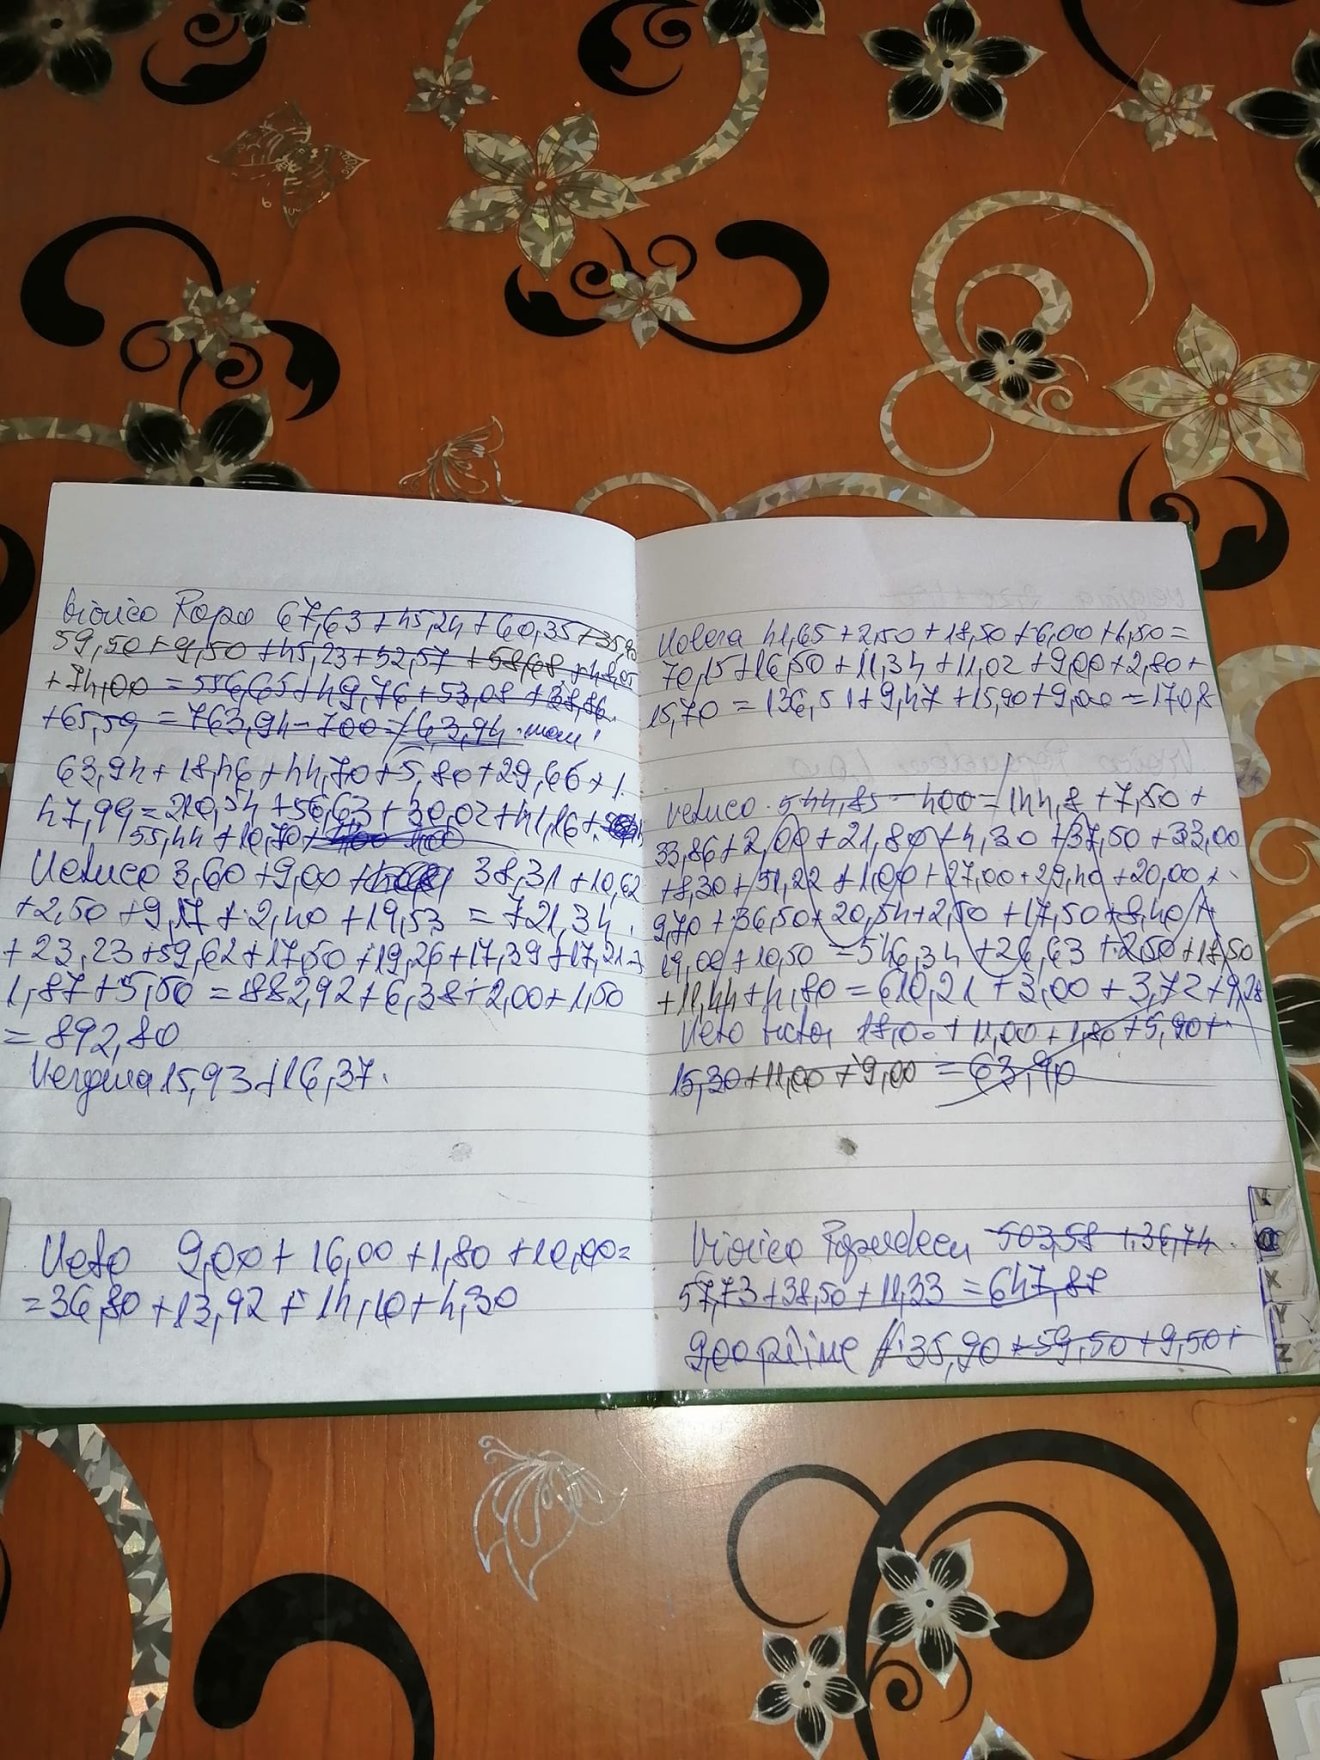 Viorico Popo 67,63+45,24+60,35+35,90
59,50+9,50+45,23+52,57+58,68+48,05
+74,00=556,65+49,76+53,08+38,86
+65,59=763,94-700=63,94
63,94+18,46+44,70+5,80+29,66+
47,99=210,54+56,63+30,02+41,16+
55,44+10,70+
Veluco 3,60+9,00+ 38,31+10,62
+2,50+9,17+2,40+19,53=721,34
+23,23+59,62+17,50+19,26+17,39+17,21+
1,87+5,50=882,92+6,38+2,00+1,50
=892,80
Vergina 15,93+16,37
Veto 9,00+16,00+1,80+10,00=
=36,80+13,92+14,10+4,30
Valera 41,65+2,50+18,50+6,00+1,50=
70,15+16,50+11,34+11,02+9,00+2,80+
15,70=136,51+9,47+15,90+9,00=170,8
Veluco 544,85-400=144,8+7,50+
33,86+2,00+21,80+4,30+37,50+33,00
+8,30+51,22+1,00+27,00+29,40+20,00+
9,70+36,50+20,54+2,50+17,50+8,40
19,00+10,50=546,34+26,63+2,50+18,50
+11,44+4,80=610,21+3,00+3,72+9,28
Veto 18,00+11,00+1,80+5,90+
15,30+11,00+9,00=63,90
Viorico 503,58+36,74
57,73+38,50+11,33=647,88
9,00 pîine 35,90+59,50+9,50+
X
Y
Z